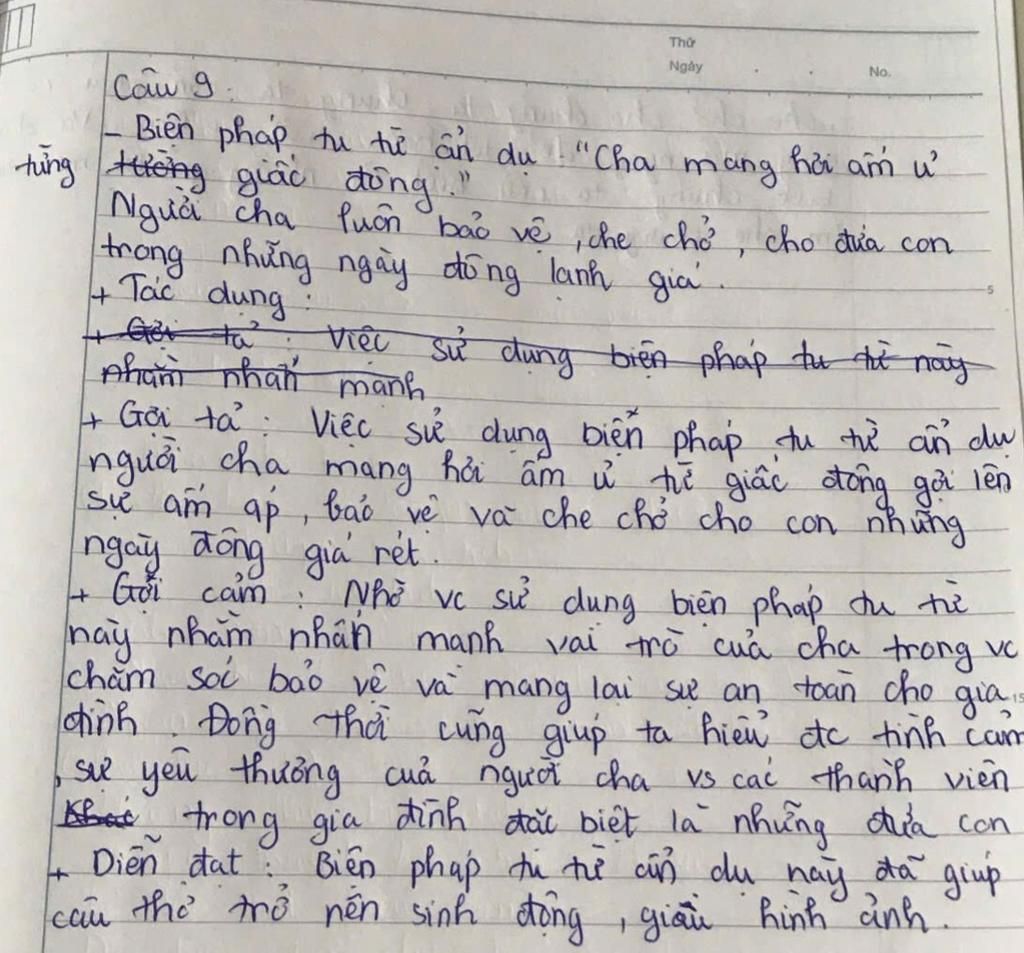 Thứ
Ngày . . No.
Câu 9 :
- Biện pháp tu từ ẩn dụ : "Cha mang hơi ấm ủ
từng tường giấc đông."
Người cha luôn bảo vệ, che chở, cho đứa con
trong những ngày đông lạnh giá.
+ Tác dụng :
5
+ Gợi tả : Việc sử dụng biện pháp tu từ này
nhằm nhấn mạnh
+ Gợi tả : Việc sử dụng biện pháp tu từ ẩn dụ
người cha mang hơi ấm ủ từ giấc đông gợi lên
sự ấm áp, bảo vệ và che chở cho con những
ngày đông giá rét.
+ Gợi cảm : Nhờ vc sử dụng biện pháp tu từ
này nhằm nhấn mạnh vai trò của cha trong vc
chăm sóc bảo vệ và mang lại sự an toàn cho gia
15
đình. Đồng thời cũng giúp ta hiểu đc tình cảm
, sự yêu thương của người cha vs các thành viên
khác trong gia đình đặc biệt là những đứa con
+ Diễn đạt : Biện pháp tu từ ẩn dụ này đã giúp
câu thơ trở nên sinh động, giàu hình ảnh.